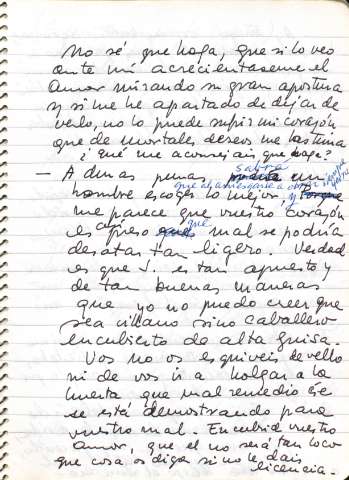 No sé que haga, que si lo veo
ante mí acreciéntaseme el
amor mirando su gran apostura
y si me he apartado de dejar de
verlo, no lo puede sufrir mi corazón
que de mortales deseos me lastima
¿Qué me aconsejáis que haga?
— A duras penas sabría un
que al arriesgarse a otro siempre
hombre escoger lo mejor, y
me parece que vuestro corazón
es preso que mal se podría
desatar tan ligero. Verdad
es que J. es tan apuesto y
de tan buenas maneras
que yo no puedo creer que
sea villano sino caballero
encubierto de alta guisa.
Vos no os esquiveis de vello
ni de vos ir a holgar a la
huerta que mal remedio ése
se está demostrando para
vuestro mal. Encubrid vuestro
amor, que el no será tan loco
que cosa os diga si no le dais
licencia.